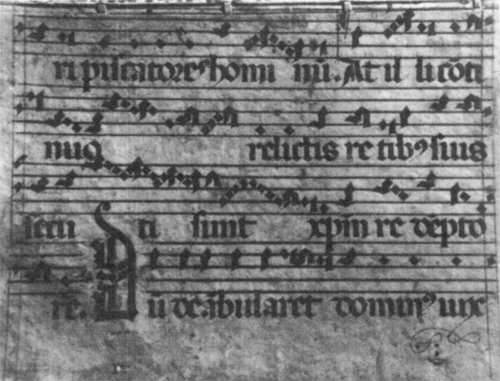 ri piscatores homi nū. At il li cōti
nuo relictis re tibꝰ suis
secu ti sunt xp̄m re dēpto
rē. Dū deābularet dominꝰ iuxͨ